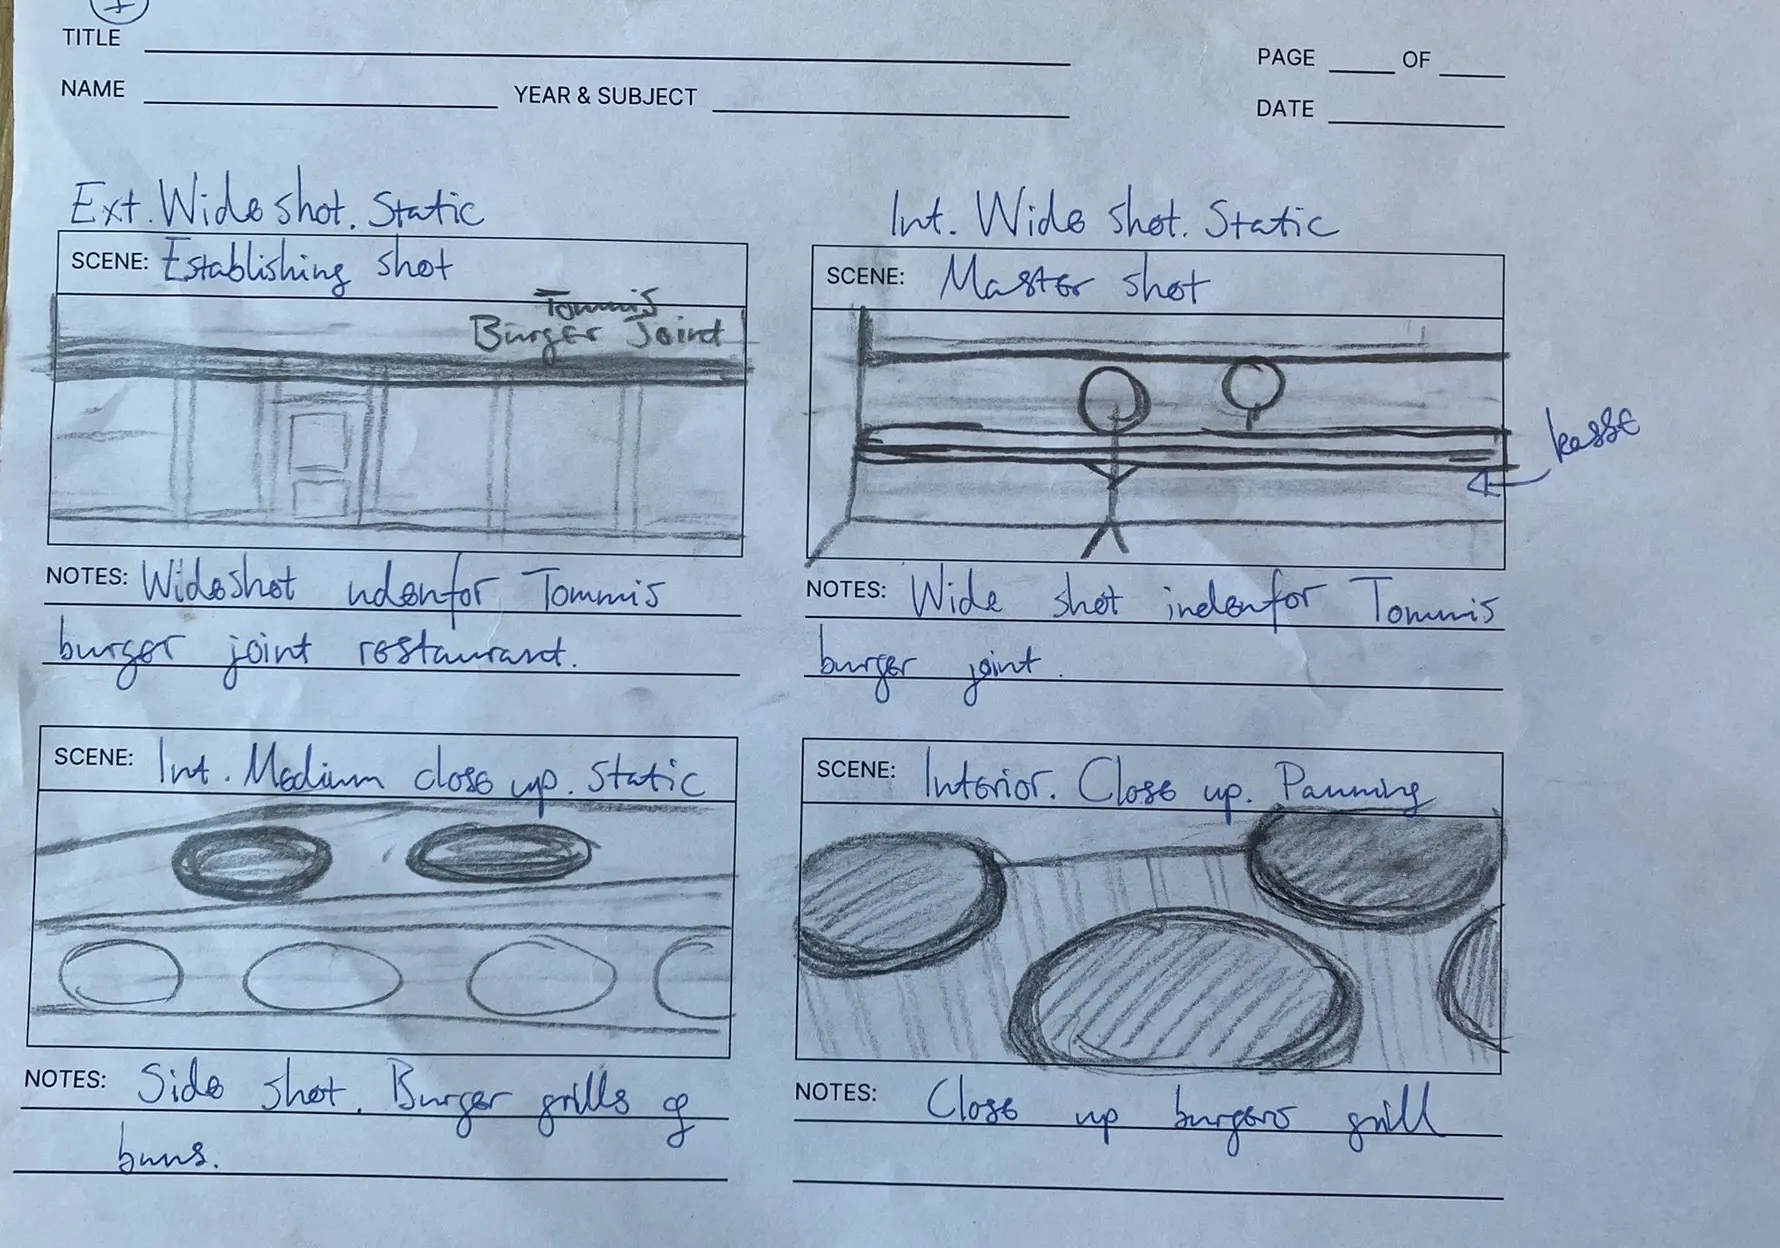 1
TITLE
PAGE OF
NAME YEAR & SUBJECT
DATE
Ext. Wide shot. Static
SCENE: Establishing shot
Tommis
Burger Joint
NOTES: Wideshot udenfor Tommis
burger joint restaurant.
Int. Wide shot. Static
SCENE: Master shot
kasse
NOTES: Wide shot indenfor Tommis
burger joint.
SCENE: Int. Medium close up. Static
NOTES: Side shot. Burger grills og
buns.
SCENE: Interior. Close up. Panning
NOTES: Close up burgers grill